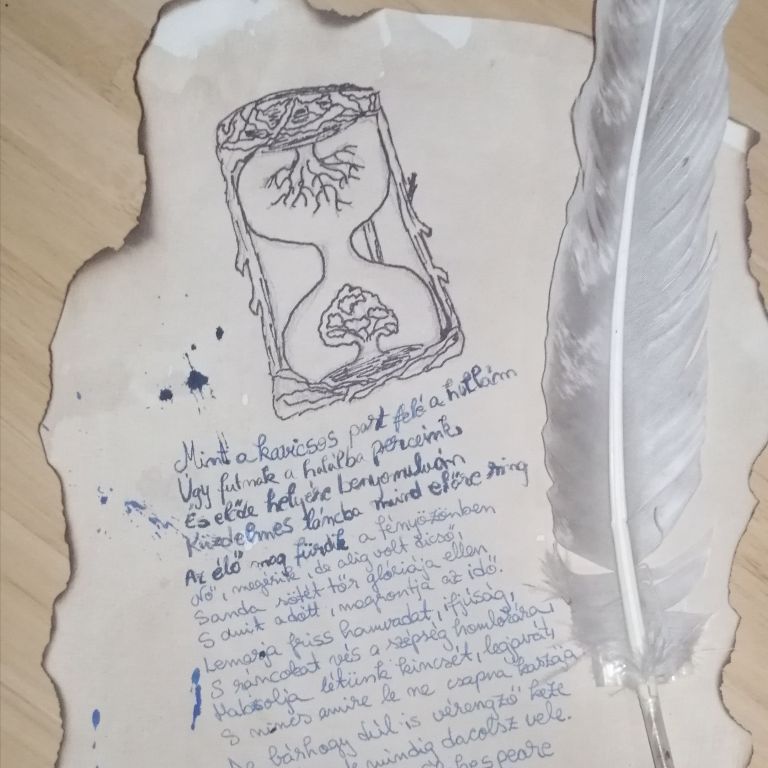 Mint a kavicsos part felé a hullám
Úgy futnak a halálba perceink,
És előde helyére benyomulván
Küzdelmes láncba mind előre ring
Az élő mag fürdik a fényözönben
Nő, megérik, de alig volt dicső,
Sanda sötét tőr glóriája ellen
S amit adott, megrontja az idő.
Lemarja friss hamvadat, ifjúság,
S ráncokat vés a szépség homlokára,
Habzsolja létünk kincsét, legjavát,
S nincs amire le ne csapna kaszája
De bárhogy dúl is vérengző keze
mindig dacolsz vele.